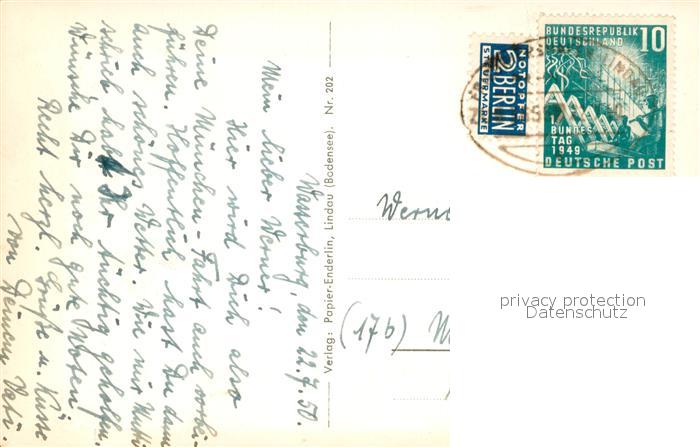 Wasserburg, den 22.7.50.
Mein lieber Werner!
Hier wird Dich also
Deine München-Fahrt auch vorbei-
führen. Hoffentlich hast Du dann
auch schönes Wetter. Von mir
schick habt Ihr tüchtig geholfen.
Wünsche Dir noch gute Noten
Recht herzl. Grüße u. Küsse
von Deinem Vati.
Verlag: Papier-Enderlin, Lindau (Bodensee). Nr. 202
NOTOPFER
2 BERLIN
STEUERMARKE
BUNDESREPUBLIK 10
DEUTSCHLAND
1. BUNDES
TAG
1949
DEUTSCHE POST
LINDAU
Wern
(17b) M
privacy protection
Datenschutz